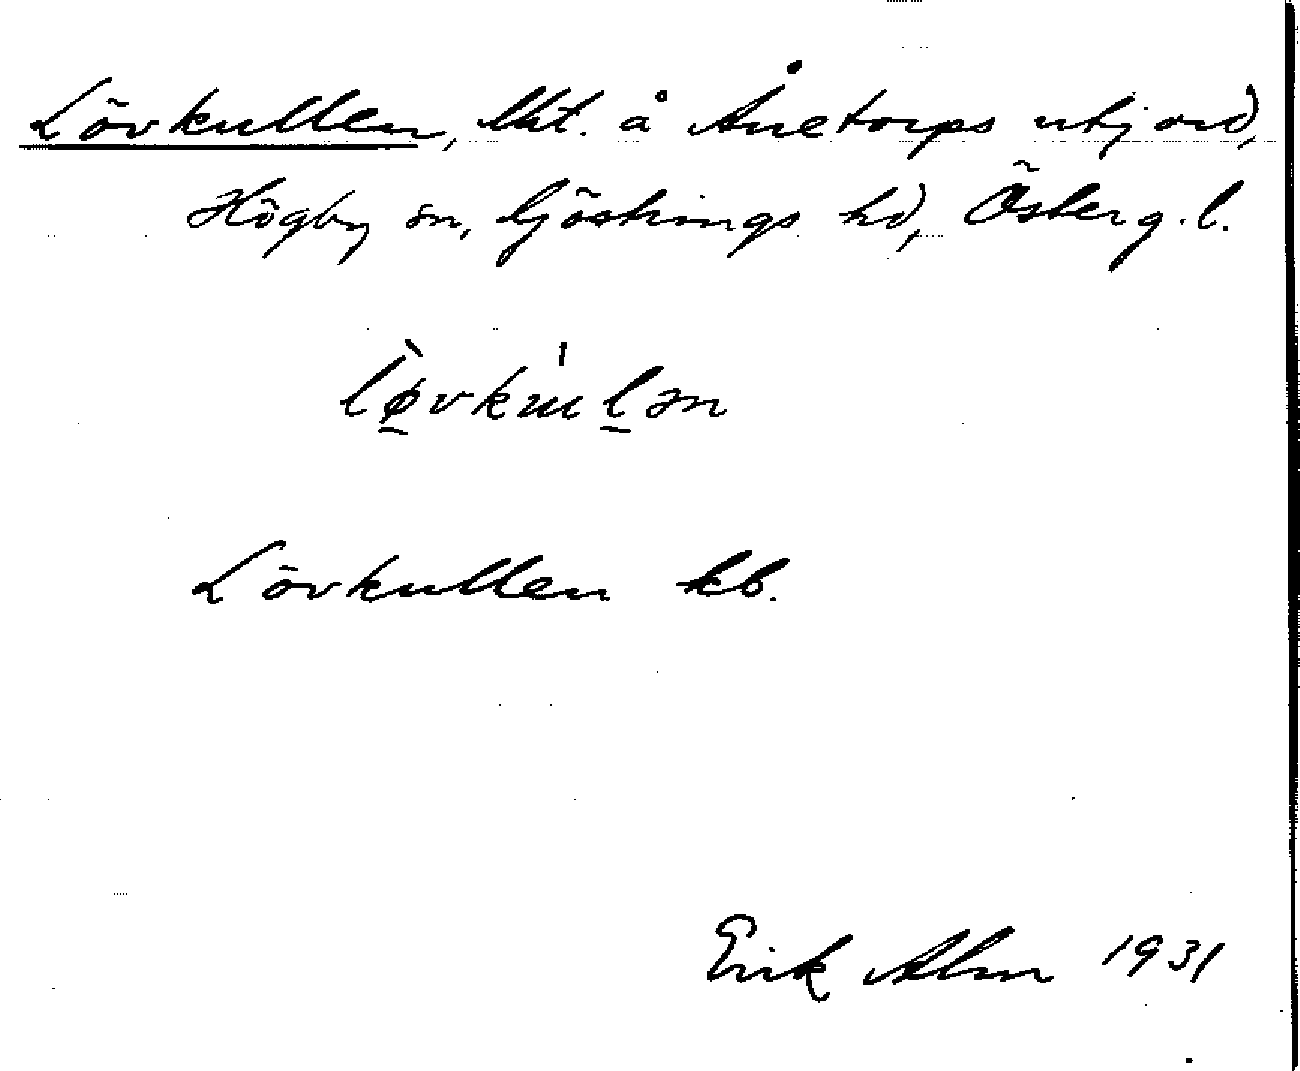 Lövkullen, lht. å Ånetorps utjord,
Högby sn, Göstrings hd, Österg. l.
lø̀vkúlən
Lövkullen kb.
Erik Alm 1931